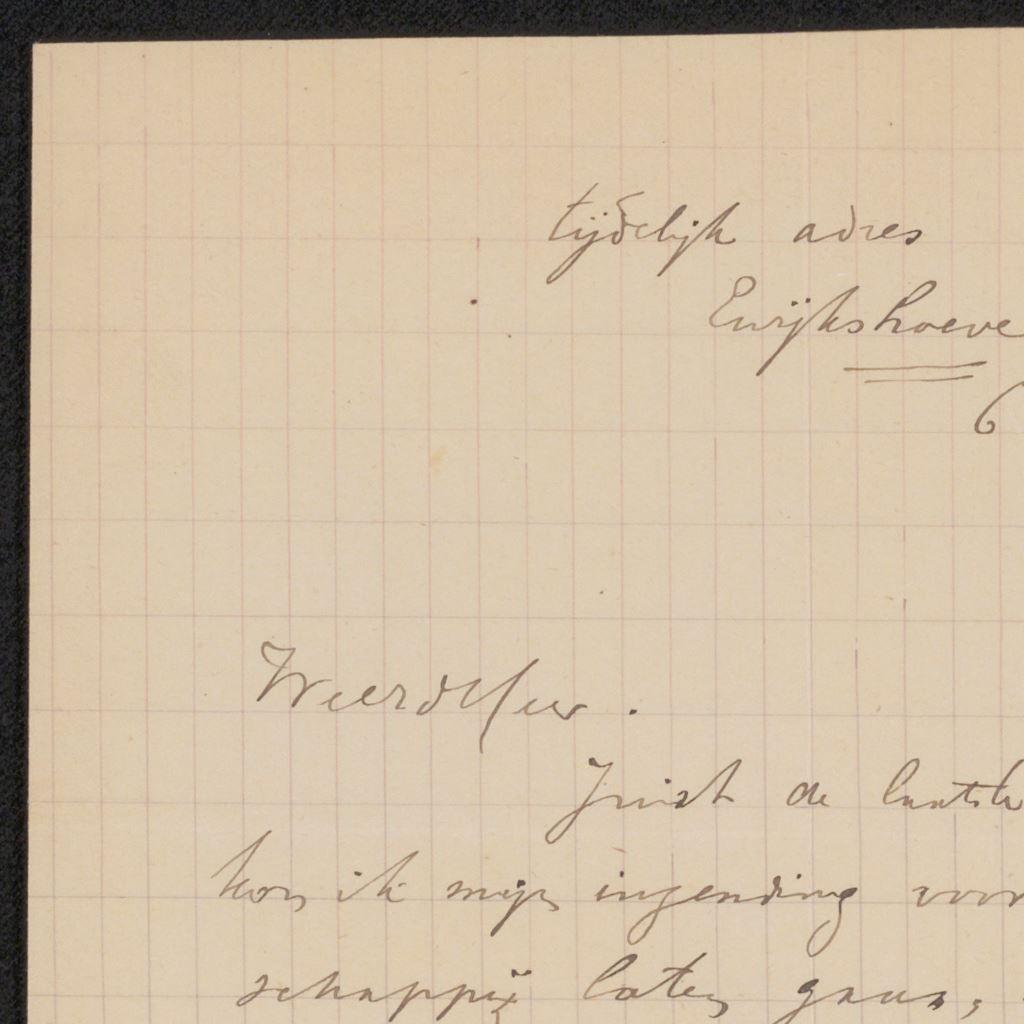 tijdelijk adres
Ewijkshoeve
6
Weerdesheer.
Juist de laatste
kon ik mijn inzending voor
schappij laten gaan,